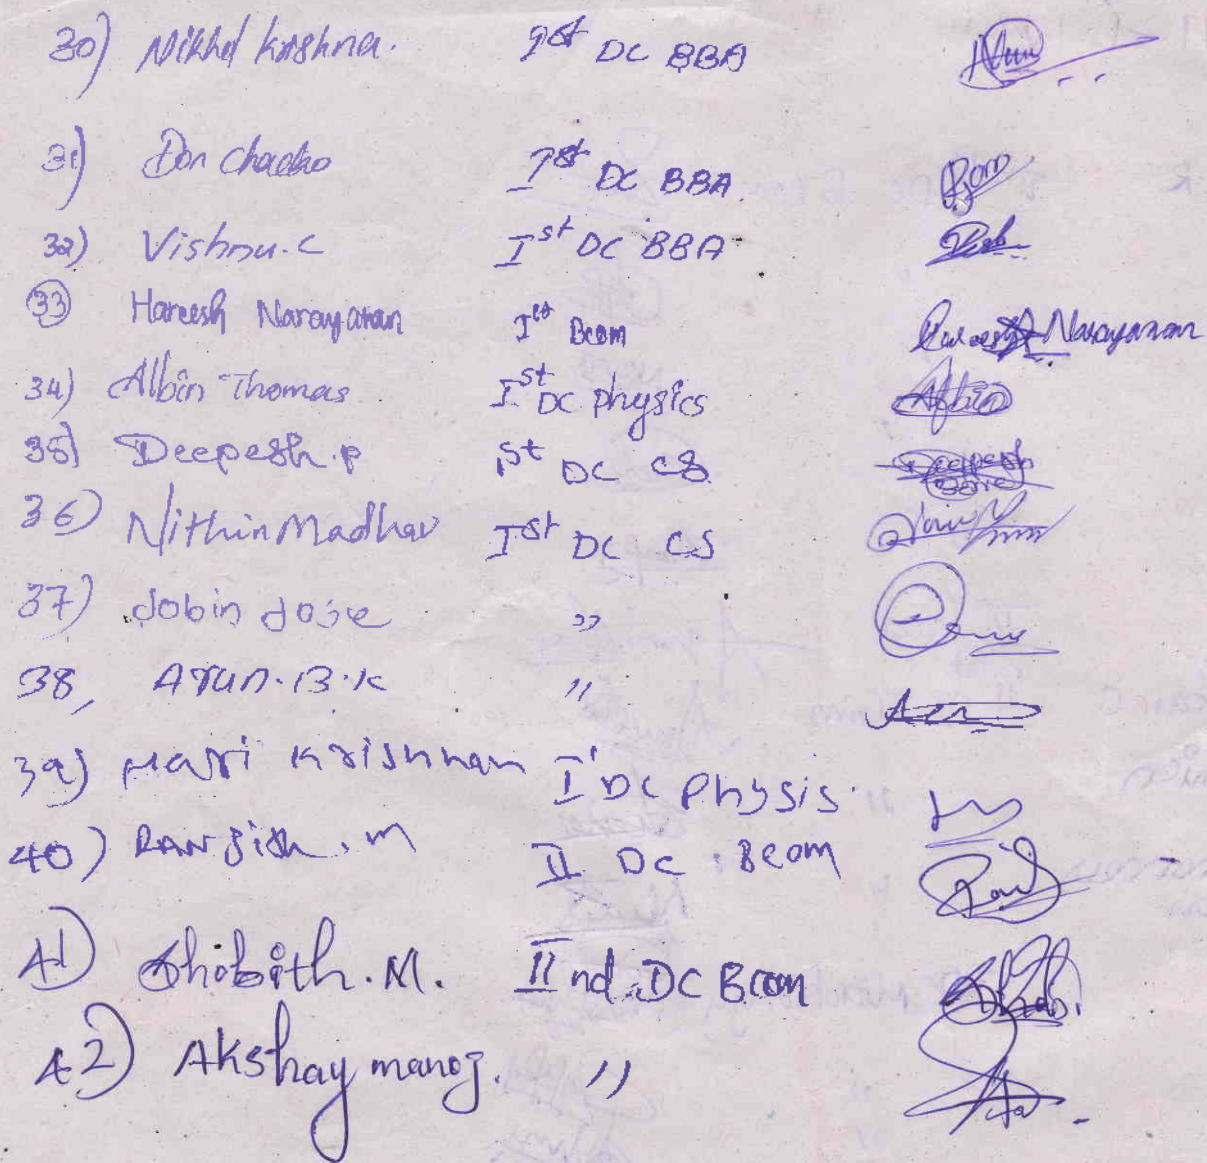 30) Nikhil Krishna. Ist DC BBA
31) Don Chacko Ist DC BBA.
32) Vishnu.C Ist DC BBA
33 Hareesh Narayanan Ist Bcom Hareesh Narayanan
34) Albin Thomas Ist DC physics Albin
35) Deepesh.P Ist DC CS Deepesh
36) Nithin Madhav Ist DC CS
37) Jobin Jose "
38, Arun.B.K "
39) Hari Krishnan I DC Physis.
40) RANJith.m II DC . Bcom
41) Shibith.M. II nd DC Bcom
42) Akshay manoj. "